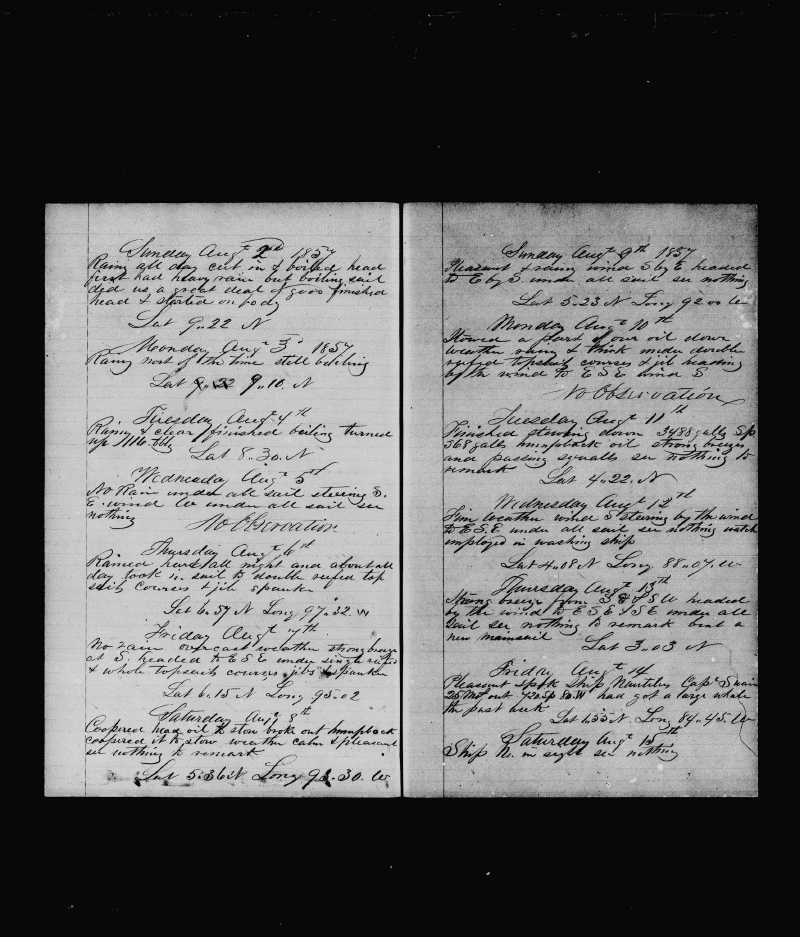 Sunday Augt 2nd 1857
Rainy all day cut in & boiled head
first had heavy rain but boiling sail
did us a great deal of good finished
head & started on body
Lat 9..22 N
Monday Augt 3d 1857
Rainy most of the time still boiling
Lat 9..10. N
Tuesday Augt 4th
Rainy & clear finished boiling turned
up bbls
Lat 8..30. N
Wednesday Augt 5th
No Rain under all sail steering S.
E. wind W under all sail see
nothing
No Observation
Thursday Augt 6th
Rained hard all night and about all
day took in sail to double reefed top
sails courses & jib spanker
Lat 6..57 N Long 97..32. W
Friday Augt 7th
No rain overcast weather strong breeze
at S. headed to E S E under single reefed
& whole topsails courses jibs & spanker
Lat 6..15 N Long 95..02
Saturday Augt 8th
Coopered head oil to stow broke out humpback
coopered it to stow weather calm & pleasant
see nothing to remark
Lat 5..36 N. Long 93..30. W
Sunday Augt 9th 1857
Pleasant & rainy wind S by E headed
to E by S under all sail see nothing
Lat 5..23 N Long 92 00 W
Monday Augt 10th
Stowed a part of our oil down
weather rainy & thick under double
reefed topsails courses & jib heading
by the wind to E S E wind S
No Observation
Tuesday Augt 11th
Finished stowing down 3488 galls Sp
568 galls humpback oil strong breezes
and passing squalls see nothing to
remark
Lat 4..22. N
Wednesday Augt 12th
Fine weather wind S steering by the wind
to E S E under all sail see nothing watch
employed in washing ship
Lat 4..08 N Long 88..07. W
Thursday Augt 13th
Strong breeze from S & S S W headed
by the wind to E S E & S E under all
sail see nothing to remark bent a
new mainsail
Lat 3..03 N
Friday Augt 14
Pleasant Spoke Ship Nautilus Capt Swain
25 Mos out 720 Sp 80 W had got a large whale
the past week
Lat 1..55 N. Long 84..45. W
Saturday Augt 15th
Ship N. in sight see nothing